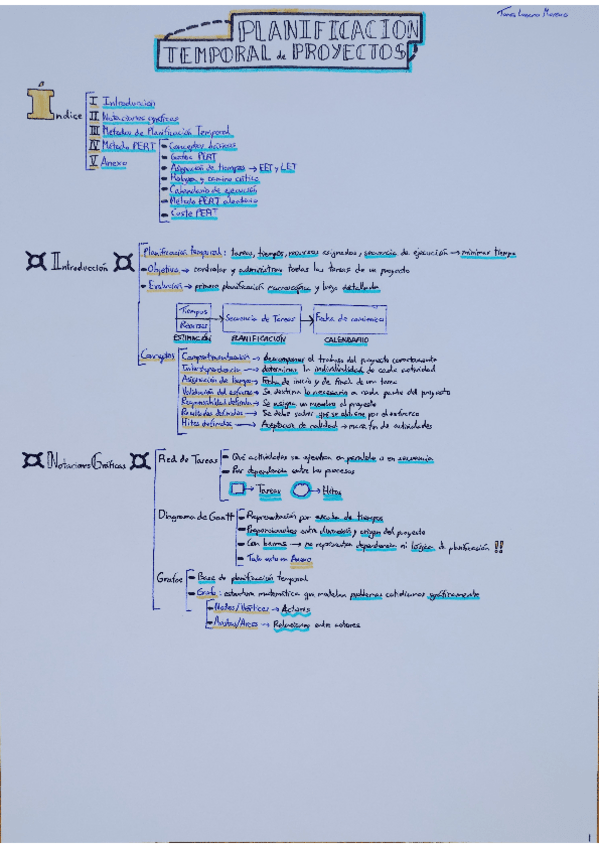 PLANIFICACION
TEMPORAL de PROYECTOS
Indice
I Introducción
II Notaciones gráficas
III Métodos de Planificación Temporal
IV Método PERT
- Conceptos básicos
- Grafos PERT
- Asignación de tiempos → EET y LET
- Holgura y camino crítico
- Calendario de ejecución
- Método PERT aleatorio
- Coste PERT
V Anexo
Introducción
Planificación temporal: tareas, tiempos, recursos asignados, secuencia de ejecución → minimizar tiempo
- Objetivo → controlar y administrar todas las tareas de un proyecto
- Evolución → primero planificación macroscópica y luego detallada
Tiempos
Recursos
Secuencia de Tareas
Fecha de
ESTIMACIÓN
PLANIFICACIÓN
CALENDARIO
Conceptos
Compartimentalización → descomponer el trabajo del proyecto correctamente
Interdependencia → determinar la individualidad de cada actividad
Asignación de tiempo → Fecha de inicio y de final de una tarea
Validación del esfuerzo → Se destina lo necesario a cada parte del proyecto
Responsabilidad definida → Se asigna un miembro al proyecto
Resultados definidos → Se debe saber que se obtiene por el esfuerzo
Hitos definidos → Aceptación de calidad → marca fin de actividades
Notaciones Gráficas
Red de Tareas
- Qué actividades se ejecutan en paralelo o en secuencia
- Por dependencia entre los procesos
→ Tareas → Hitos
Diagrama de Gantt
- Representación por escala de tiempos
- Proporcionales entre dimensión y origen del proyecto
- Con barras → no representan dependencia ni lógica de planificación !!
- Todo esto en Anexo
Grafos
- Base de planificación temporal
- Grafo: estructura matemática que modelan problemas cotidianos gráficamente
- Nodos/Vértices → Actores
- Aristas/Arcos → Relaciones entre actores
1